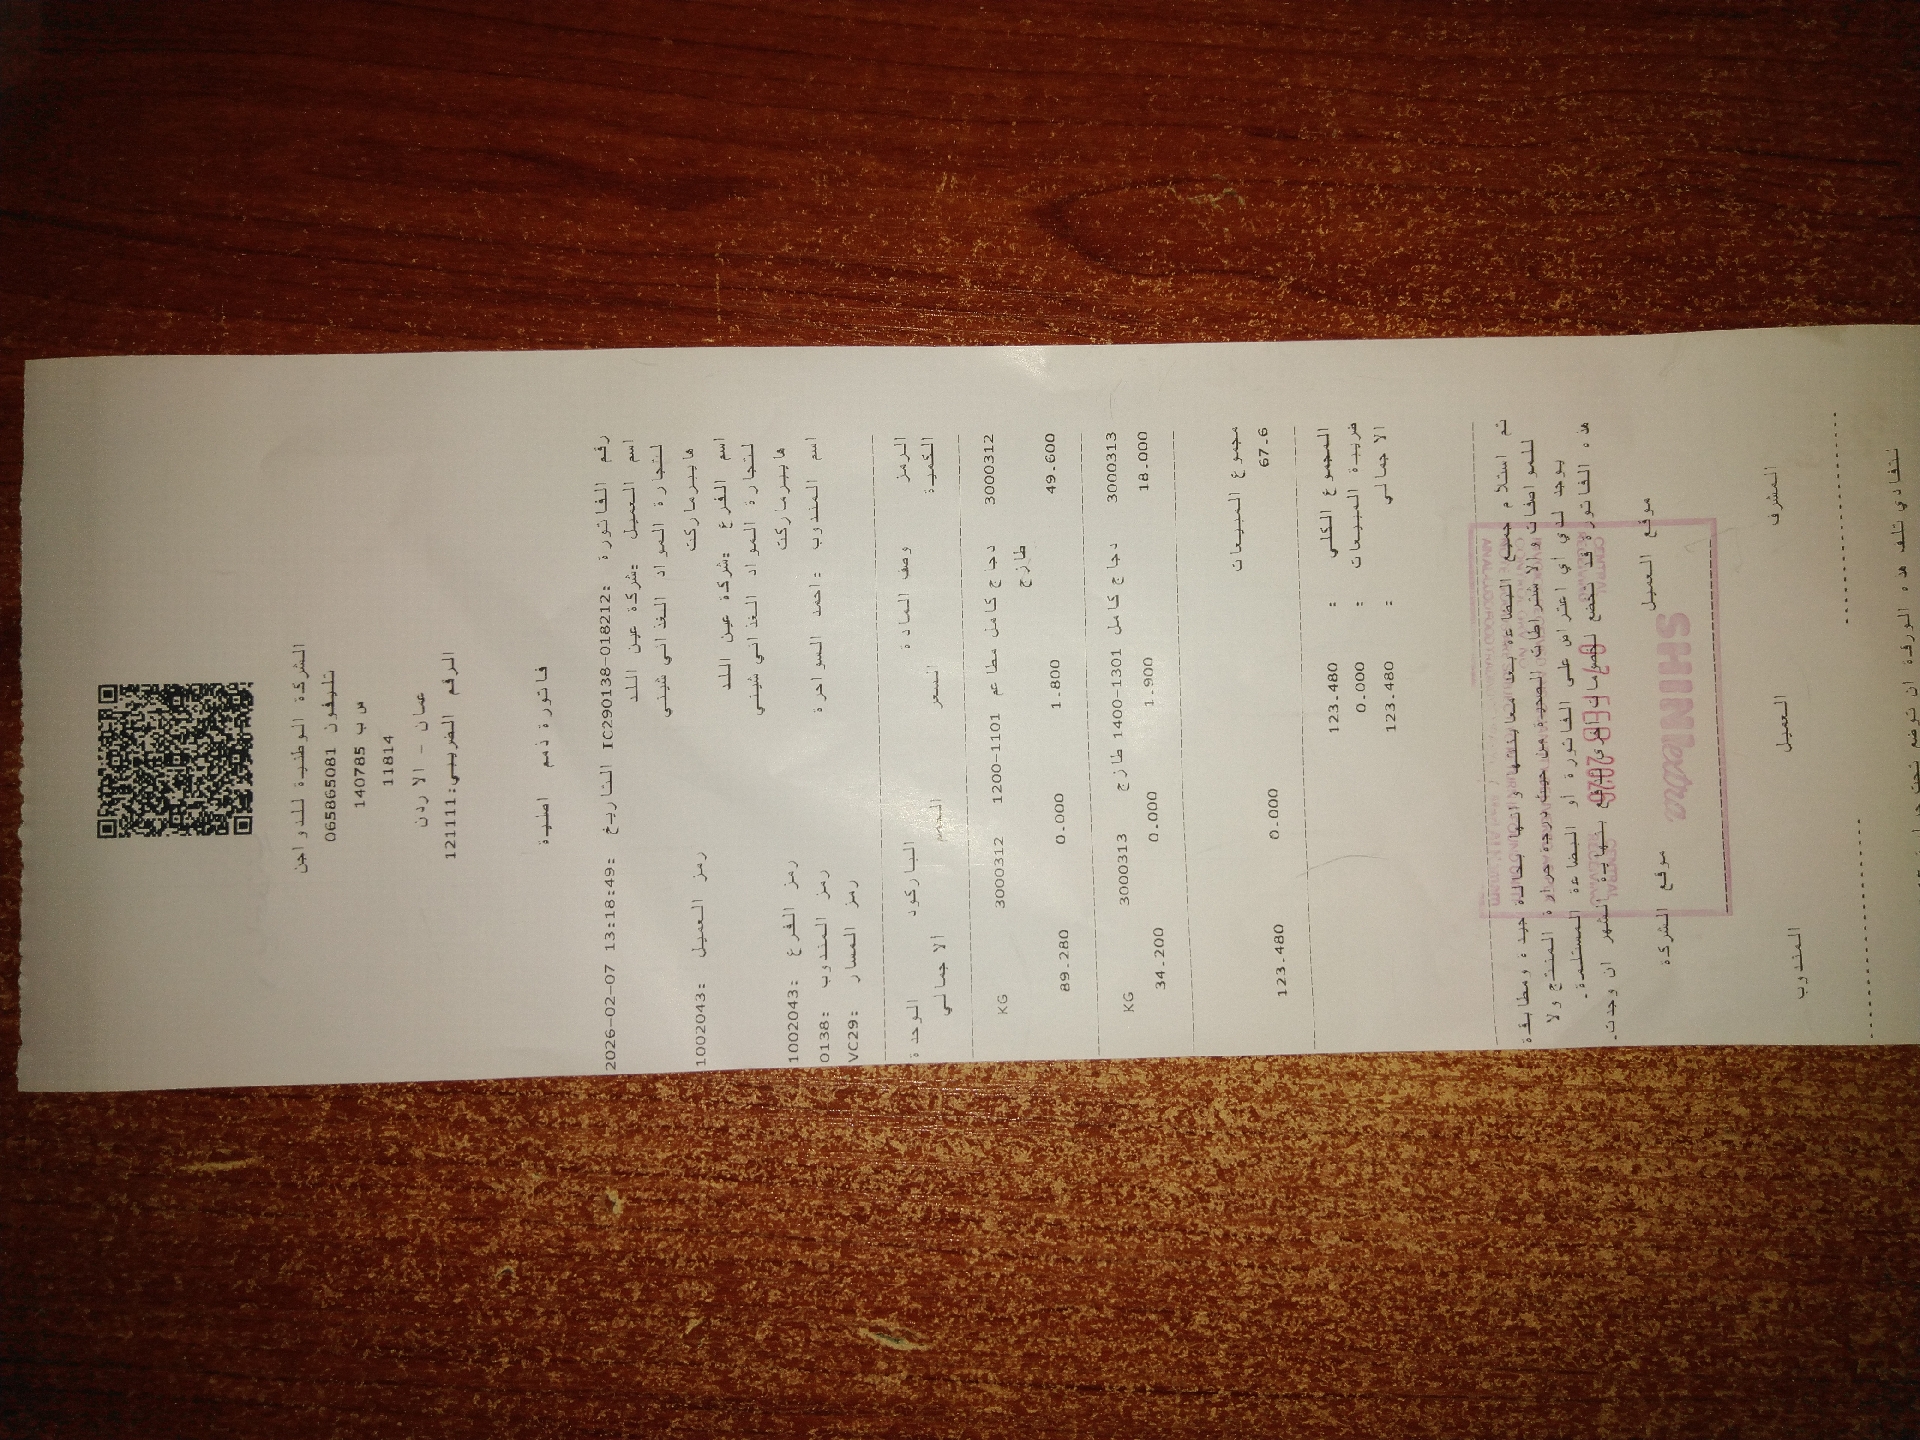 الشركة الوطنية للدواجن
تليفون 065865081
ص ب 140785
11814
عمان - الاردن
الرقم الضريبي:121111
فاتورة ذمم اصلية
رقم الفاتورة :IC290138-018212 التاريخ :2026-02-07 13:18:49
اسم العميل :شركة عين اللد
للتجارة المواد الغذائي شيني
هايبرماركت رمز العميل :1002043
اسم الفرع :شركة عين اللد
للتجارة المواد الغذائي شيني
هايبرماركت رمز الفرع :1002043
اسم المندوب :احمد السواحرة رمز المندوب :0138
رمز المسار :VC29
الرمز وصف المادة الباركود الوحدة
الكمية السعر الخصم الاجمالي
3000312 دجاج كامل مطاعم 1200-1101 3000312 KG
طازج
49.600 1.800 0.000 89.280
3000313 دجاج كامل 1400-1301 طازج 3000313 KG
18.000 1.900 0.000 34.200
مجموع المبيعات
67.6 0.000 123.480
المجموع الكلي : 123.480
ضريبة المبيعات : 0.000
الاجمالي : 123.480
تم استلام جميع البضاعة بعد معاينتها وانها بحالة جيدة ومطابقة
للمواصفات والاشتراطات الصحية من حيث درجة حرارة المنتج ولا
يوجد لدي أي اعتراض على الفاتورة أو البضاعة المستلمة.
هذه الفاتورة قد تخضع لخصومات اخرى تدفع بنهاية الشهر ان وجدت.
07 FEB 2026
موقع العميل موقع الشركة
SHINI extra
المشرف العميل المندوب
لتفادي تلف هذه الورقة ان توضع تحت